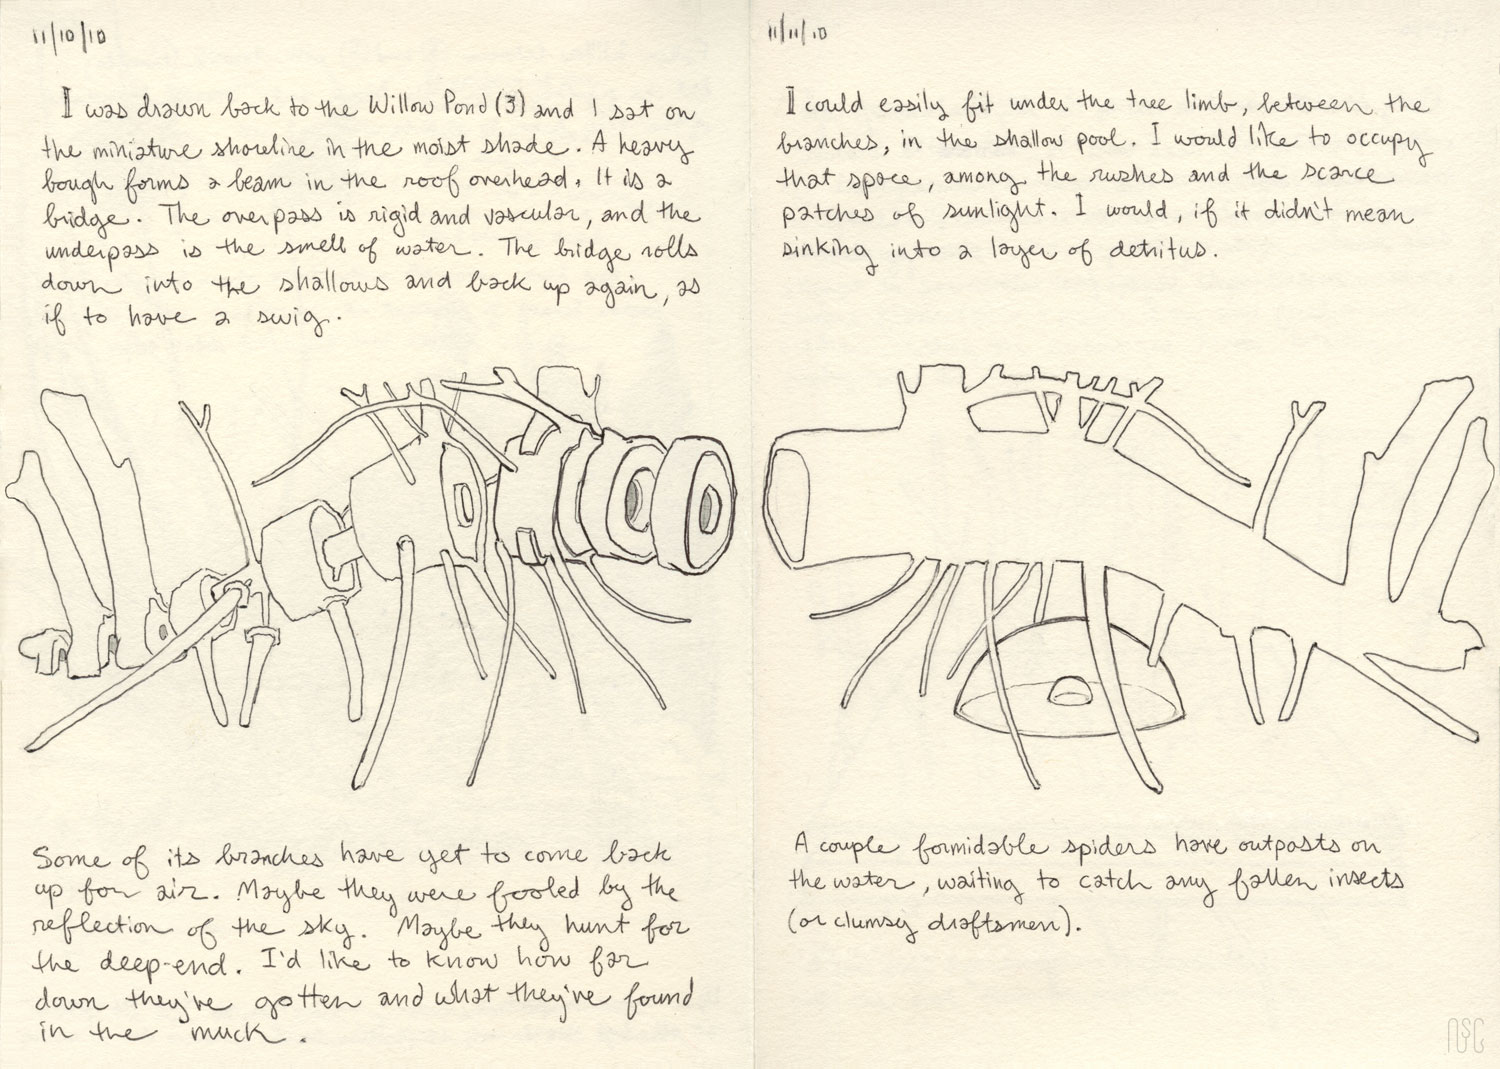 11/10/10
I was drawn back to the Willow Pond (3) and I sat on
the miniature shoreline in the moist shade. A heavy
bough forms a beam in the roof overhead. It is a
bridge. The overpass is rigid and vascular, and the
underpass is the smell of water. The bridge rolls
down into the shallows and back up again, as
if to have a swig.
Some of its branches have yet to come back
up for air. Maybe they were fooled by the
reflection of the sky. Maybe they hunt for
the deep-end. I'd like to know how far
down they've gotten and what they've found
in the muck.
11/11/10
I could easily fit under the tree limb, between the
branches, in the shallow pool. I would like to occupy
that space, among the rushes and the scarce
patches of sunlight. I would, if it didn't mean
sinking into a layer of detritus.
A couple formidable spiders have outposts on
the water, waiting to catch any fallen insects
(or clumsy draftsmen).